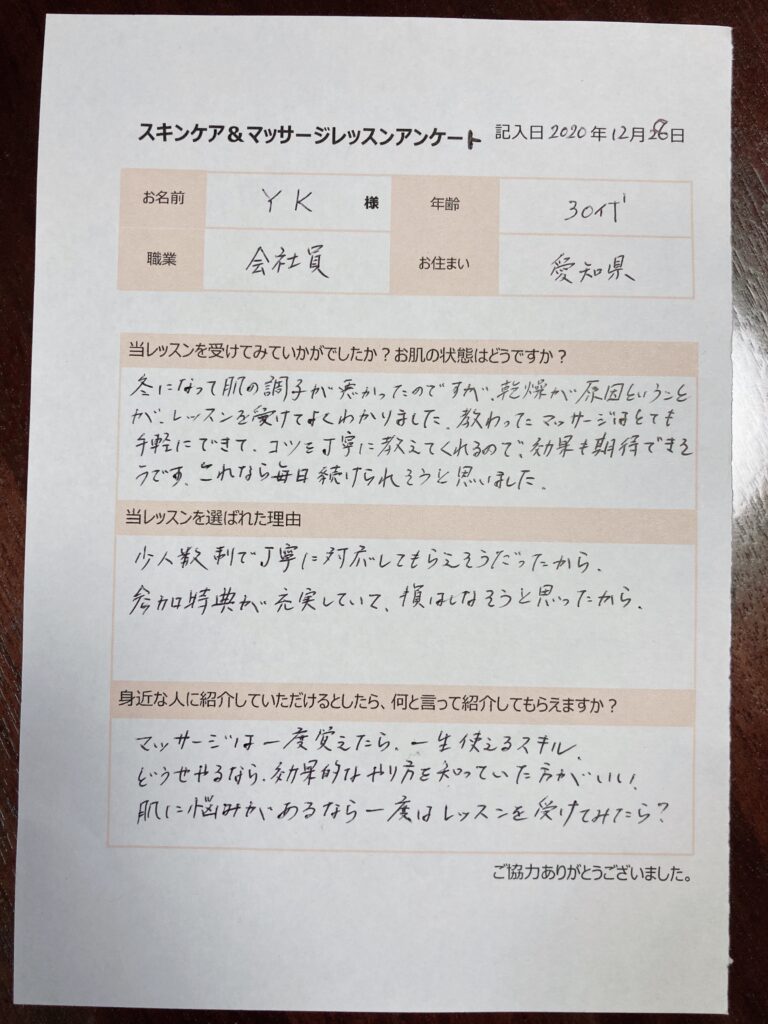 スキンケア＆マッサージレッスンアンケート 記入日 2020 年 12月 26日
お名前 YK 様 年齢 30代
職業 会社員 お住まい 愛知県
当レッスンを受けてみていかがでしたか？お肌の状態はどうですか？
冬になって肌の調子が悪かったのですが、乾燥が原因ということ
が、レッスンを受けてよくわかりました。教わったマッサージはとても
手軽にできて、コツも丁寧に教えてくれるので、効果も期待できそ
うです。これなら毎日続けられそうと思いました。
当レッスンを選ばれた理由
少人数制で丁寧に対応してもらえそうだったから。
参加特典が充実していて、損はしなそうと思ったから。
身近な人に紹介していただけるとしたら、何と言って紹介してもらえますか？
マッサージは一度覚えたら、一生使えるスキル。
どうせやるなら、効果的なやり方を知っていた方がいい！
肌に悩みがあるなら一度はレッスンを受けてみたら？
ご協力ありがとうございました。